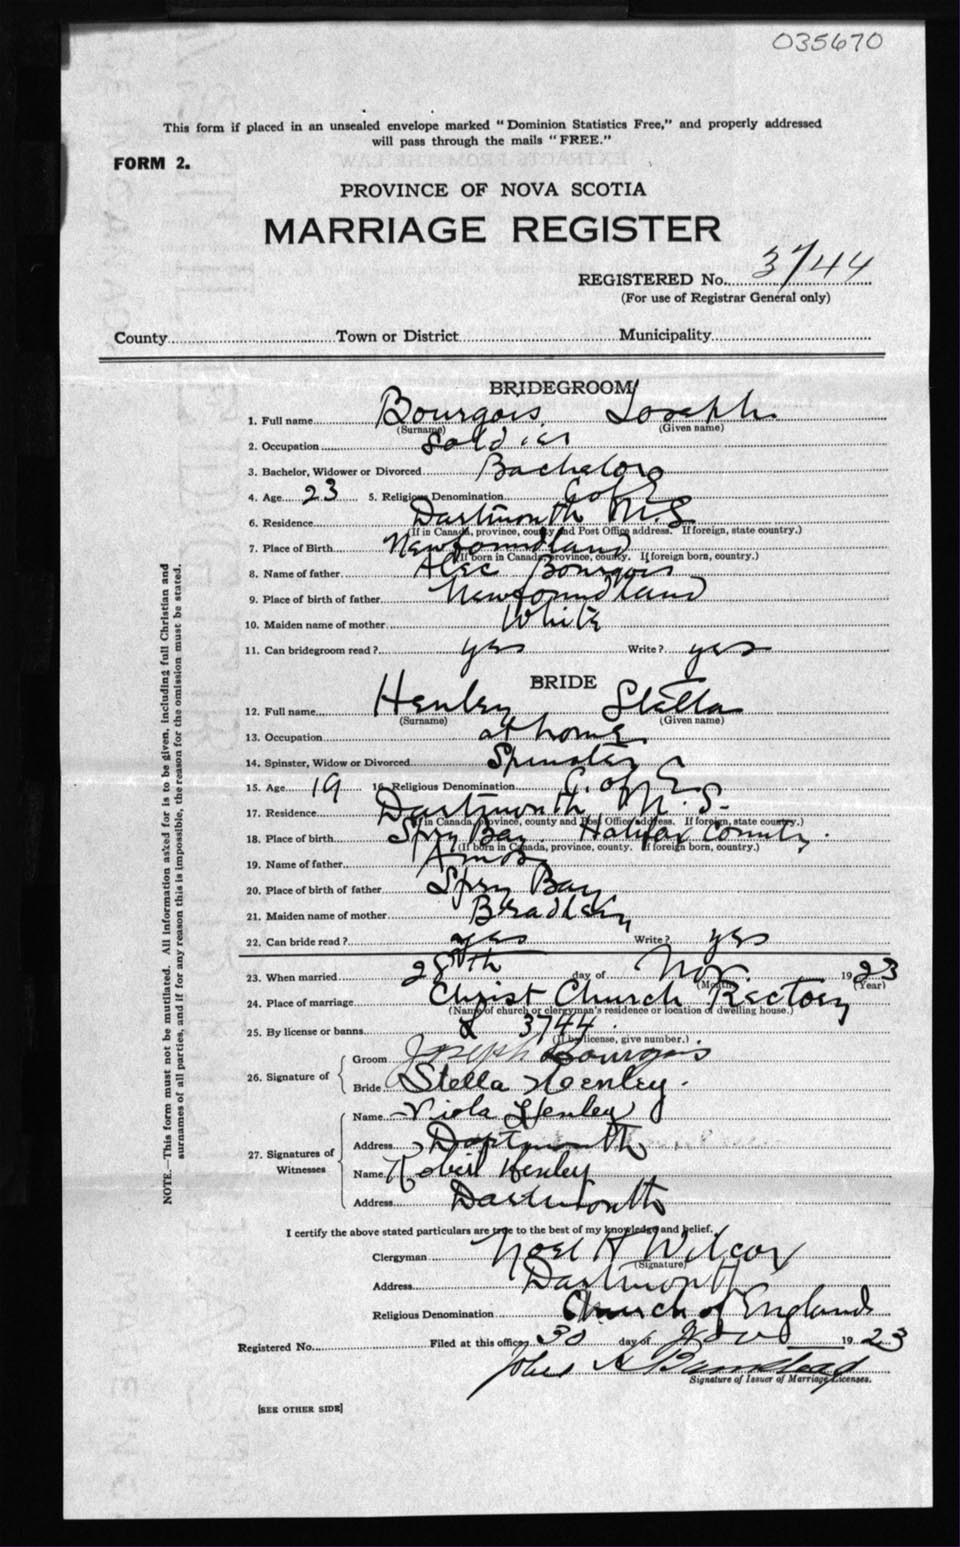 035670
This form if placed in an unsealed envelope marked "Dominion Statistics Free," and properly addressed
will pass through the mails "FREE."
FORM 2.
PROVINCE OF NOVA SCOTIA
MARRIAGE REGISTER
REGISTERED No. 3744
(For use of Registrar General only)
County Town or District Municipality
BRIDEGROOM
1. Full name Bourgois Joseph
(Surname) (Given name)
2. Occupation Soldier
3. Bachelor, Widower or Divorced Bachelor
4. Age 23 5. Religious Denomination C of E
6. Residence Dartmouth N S
(If in Canada, province, county and Post Office address. If foreign, state country.)
7. Place of Birth Newfoundland
(If born in Canada, province, county. If foreign born, country.)
8. Name of father Alec Bourgois
9. Place of birth of father Newfoundland
10. Maiden name of mother White
11. Can bridegroom read? yes Write? yes
BRIDE
12. Full name Henley Stella
(Surname) (Given name)
13. Occupation at home
14. Spinster, Widow or Divorced Spinster
15. Age 19 16. Religious Denomination C. of E
17. Residence Dartmouth N. S.
(If in Canada, province, county and Post Office address. If foreign, state country.)
18. Place of birth Spry Bay Halifax County.
(If born in Canada, province, county. If foreign born, country.)
19. Name of father Amos
20. Place of birth of father Spry Bay
21. Maiden name of mother
22. Can bride read? yes Write? yes
23. When married 28th day of Nov. 1923
(Month) (Year)
24. Place of marriage Christ Church Rectory
(Name of church or clergyman's residence or location of dwelling house.)
25. By license or banns L 3744.
(If by license, give number.)
26. Signature of
Groom Joseph Bourgois
Bride Stella Henley.
27. Signatures of Witnesses
Name Viola Henley
Address Dartmouth
Name Robert Henley
Address Dartmouth
I certify the above stated particulars are true to the best of my knowledge and belief.
Clergyman Noel H Wilcox
(Signature)
Address Dartmouth
Religious Denomination Church of England
Registered No. Filed at this office 30 day of Nov 1923
Signature of Issuer of Marriage Licenses.
[SEE OTHER SIDE]
NOTE.—This form must not be mutilated. All information asked for is to be given, including full Christian and
surnames of all parties, and if for any reason this is impossible, the reason for the omission must be stated.